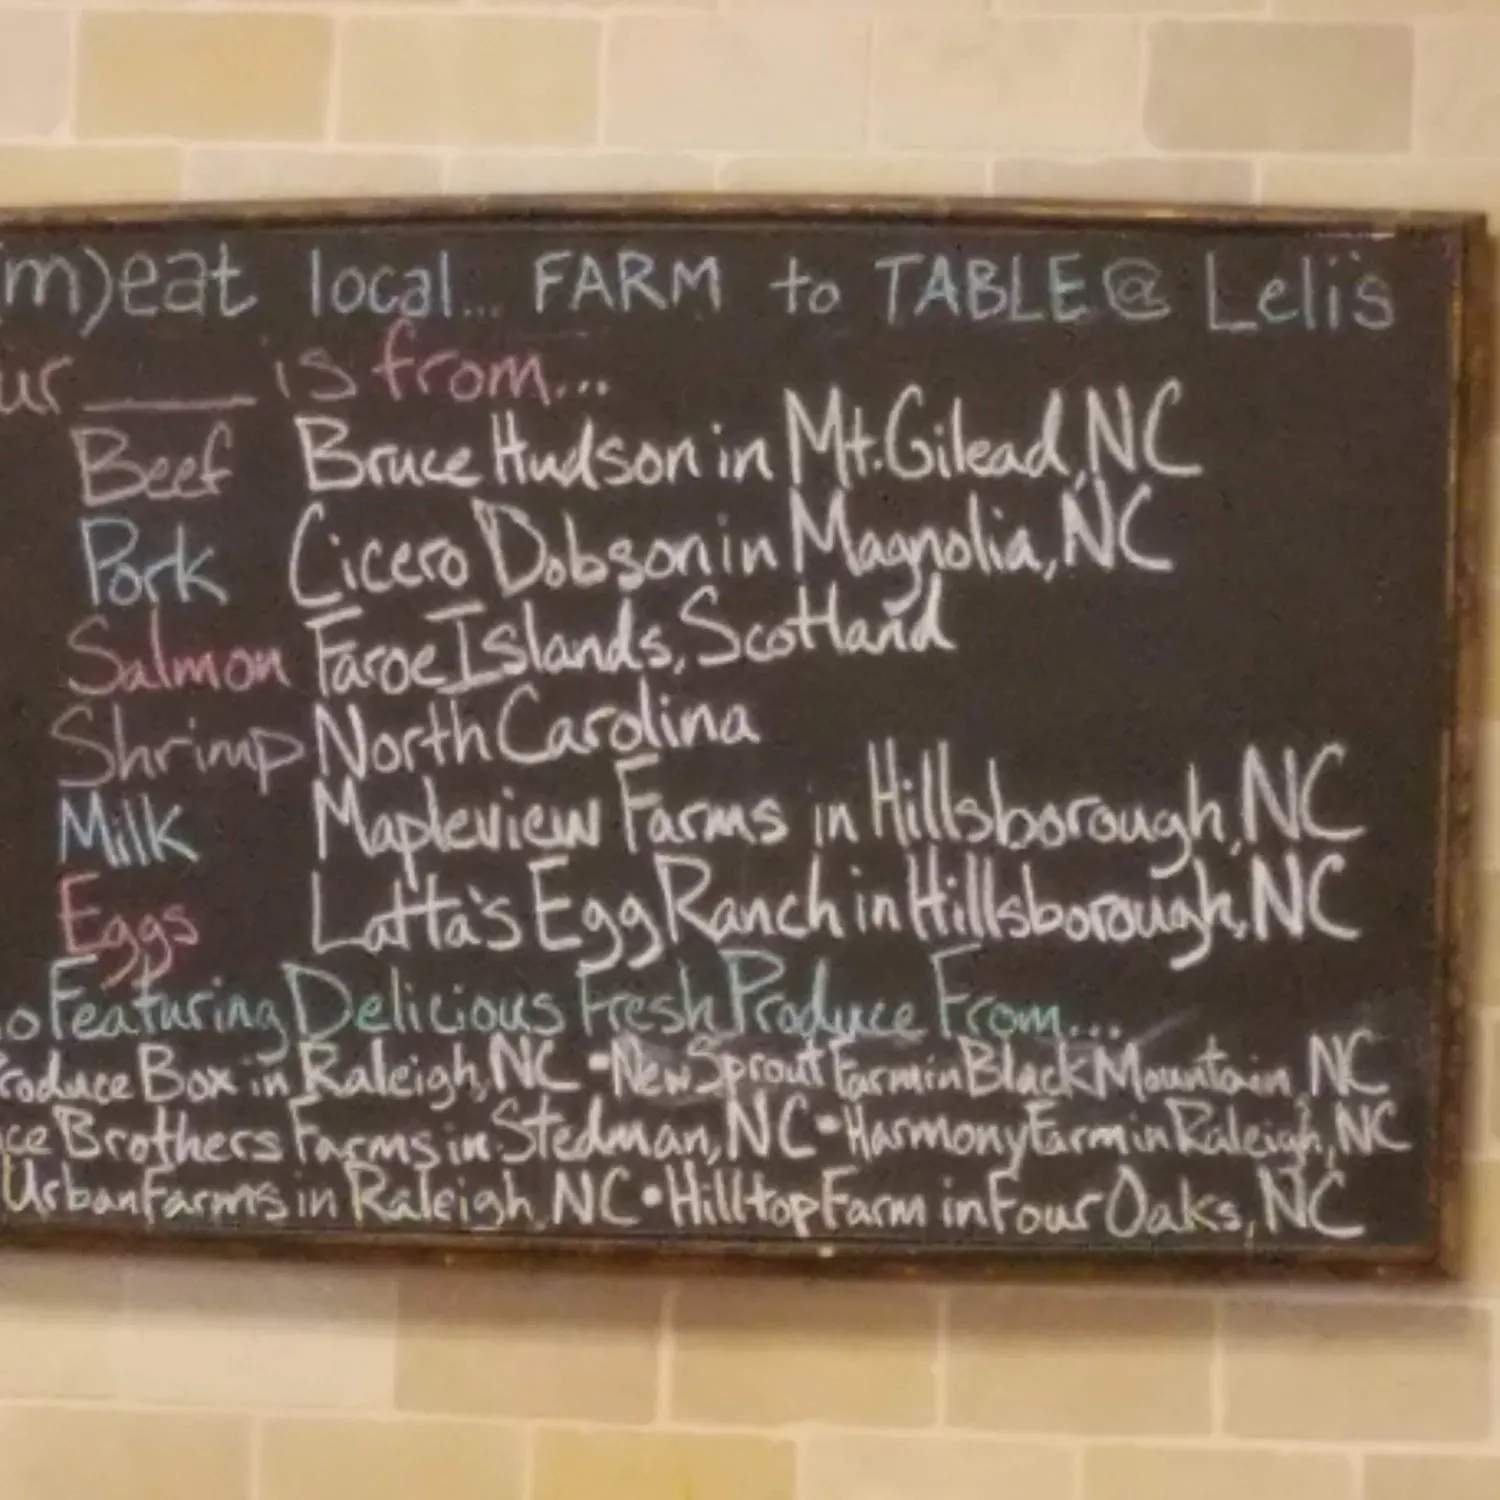 m)eat local... FARM to TABLE @ Leli's
ur ____ is from...
Beef Bruce Hudson in Mt. Gilead, NC
Pork Cicero Dobson in Magnolia, NC
Salmon Faroe Islands, Scotland
Shrimp North Carolina
Milk Mapleview Farms in Hillsborough, NC
Eggs Latta's Egg Ranch in Hillsborough, NC
o Featuring Delicious Fresh Produce From...
roduce Box in Raleigh, NC • New Sprout Farm in Black Mountain, NC
ce Brothers Farms in Stedman, NC • Harmony Farm in Raleigh, NC
Urban Farms in Raleigh, NC • Hilltop Farm in Four Oaks, NC